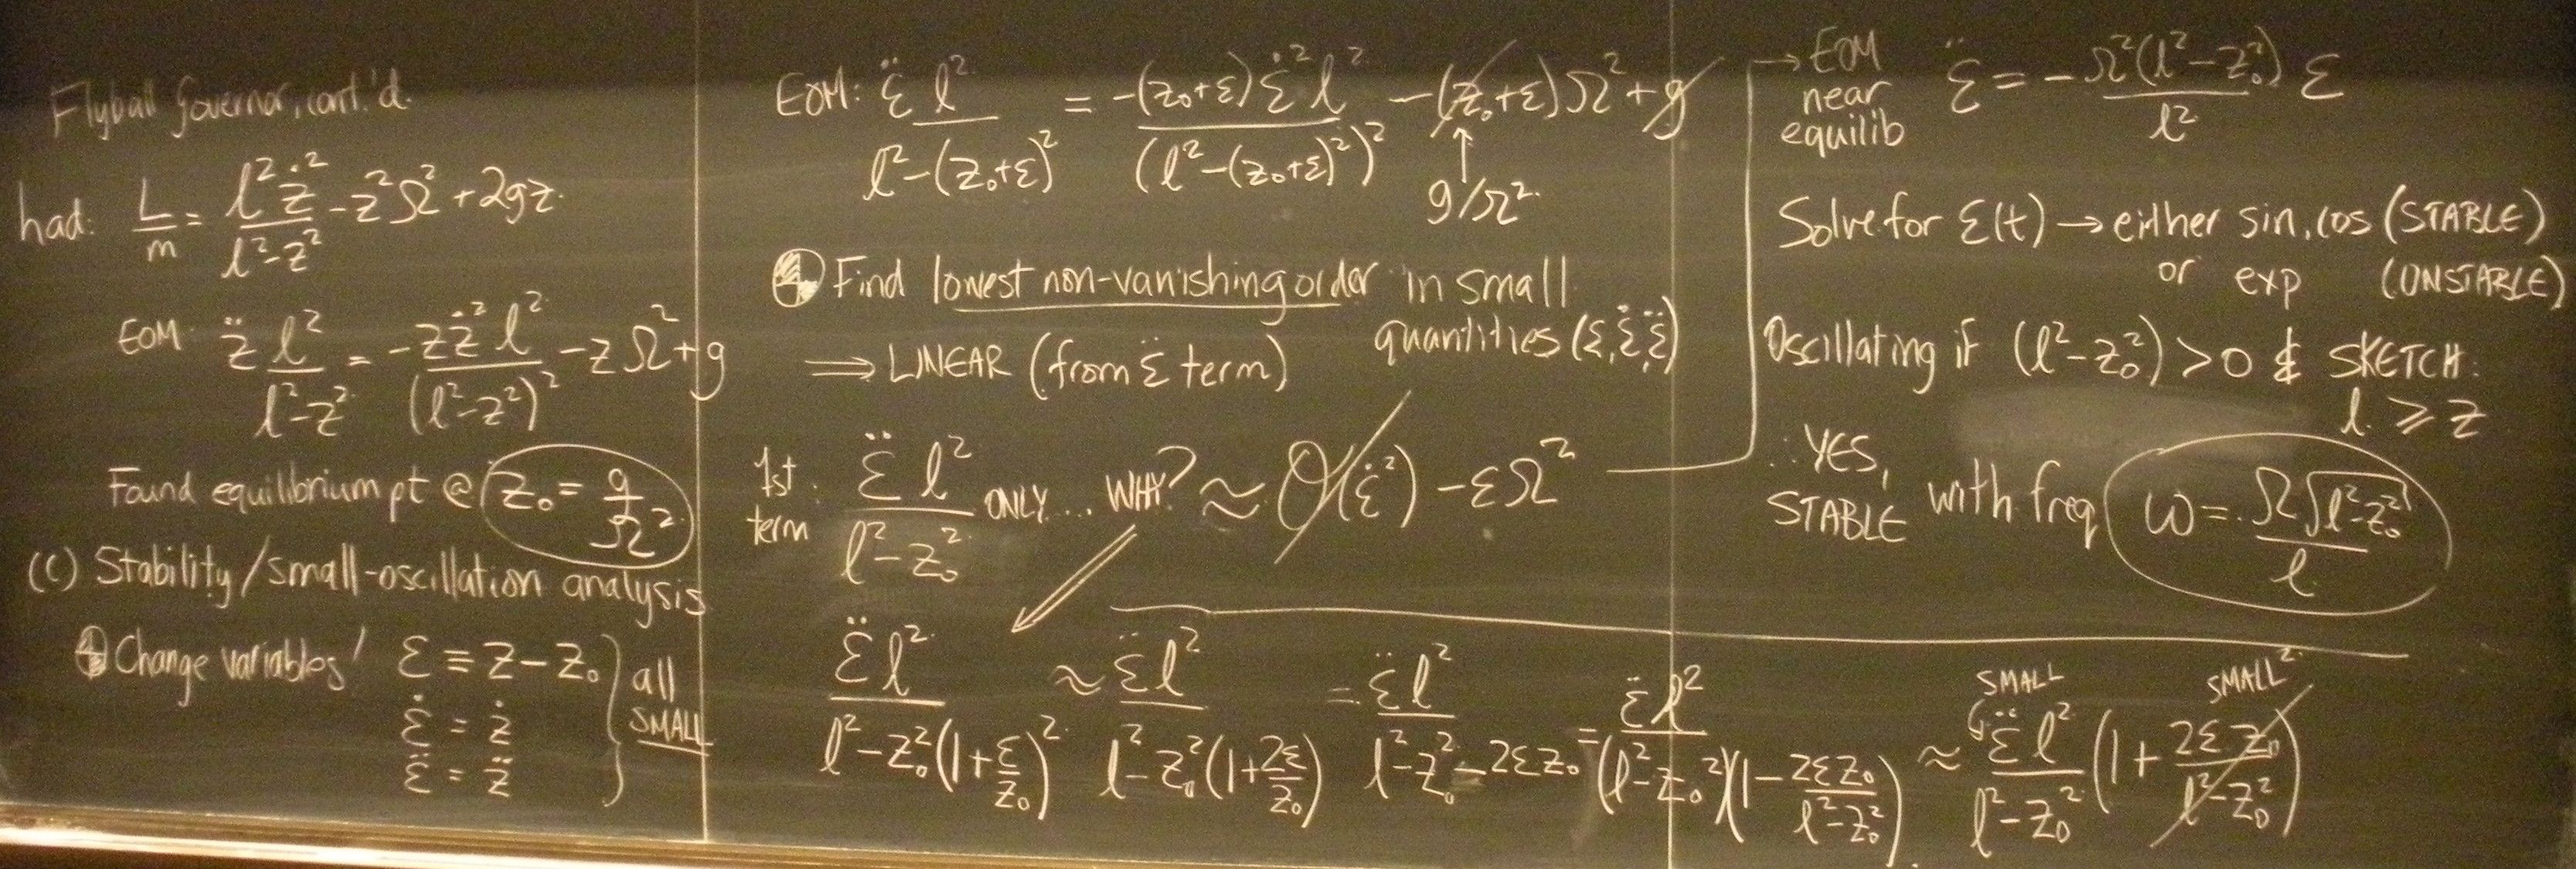 Flyball Governor, cont.'d.
had: L/m = l²ż²/(l²-z²) - z²Ω² + 2gz.
EOM: z̈ l²/(l²-z²) = -zż²l²/(l²-z²)² - zΩ² + g
Found equilibrium pt @ z₀ = g/Ω²
(c) Stability/small-oscillation analysis
Change variables! ε ≡ z - z₀
ε̇ = ż
ε̈ = z̈
} all SMALL
EOM: ε̈ l²/(l²-(z₀+ε)²) = -(z₀+ε)ε̇²l²/(l²-(z₀+ε)²)² - (z₀+ε)Ω² + g
↑
g/Ω²
Find lowest non-vanishing order in small
quantities (ε, ε̇, ε̈)
⟹ LINEAR (from ε̈ term)
1st term: ε̈ l²/(l²-z₀²) ONLY... WHY? ≈ O(ε̇²) - εΩ²
ε̈ l²/(l²-z₀²(1+ε/z₀)²) ≈ ε̈ l²/(l²-z₀²(1+2ε/z₀)) = ε̈ l²/(l²-z₀²-2εz₀) = ε̈ l²/((l²-z₀²)(1-2εz₀/(l²-z₀²))) ≈ ε̈ l²/(l²-z₀²) (1+2εz₀/(l²-z₀²))
SMALL SMALL²
→ EOM near equilib ε̈ = -Ω²(l²-z₀²)/l² ε
Solve for ε(t) → either sin, cos (STABLE)
or exp (UNSTABLE)
Oscillating if (l²-z₀²) > 0 & SKETCH:
l ⩾ z
∴ YES, STABLE with freq ω = Ω√(l²-z₀²)/l